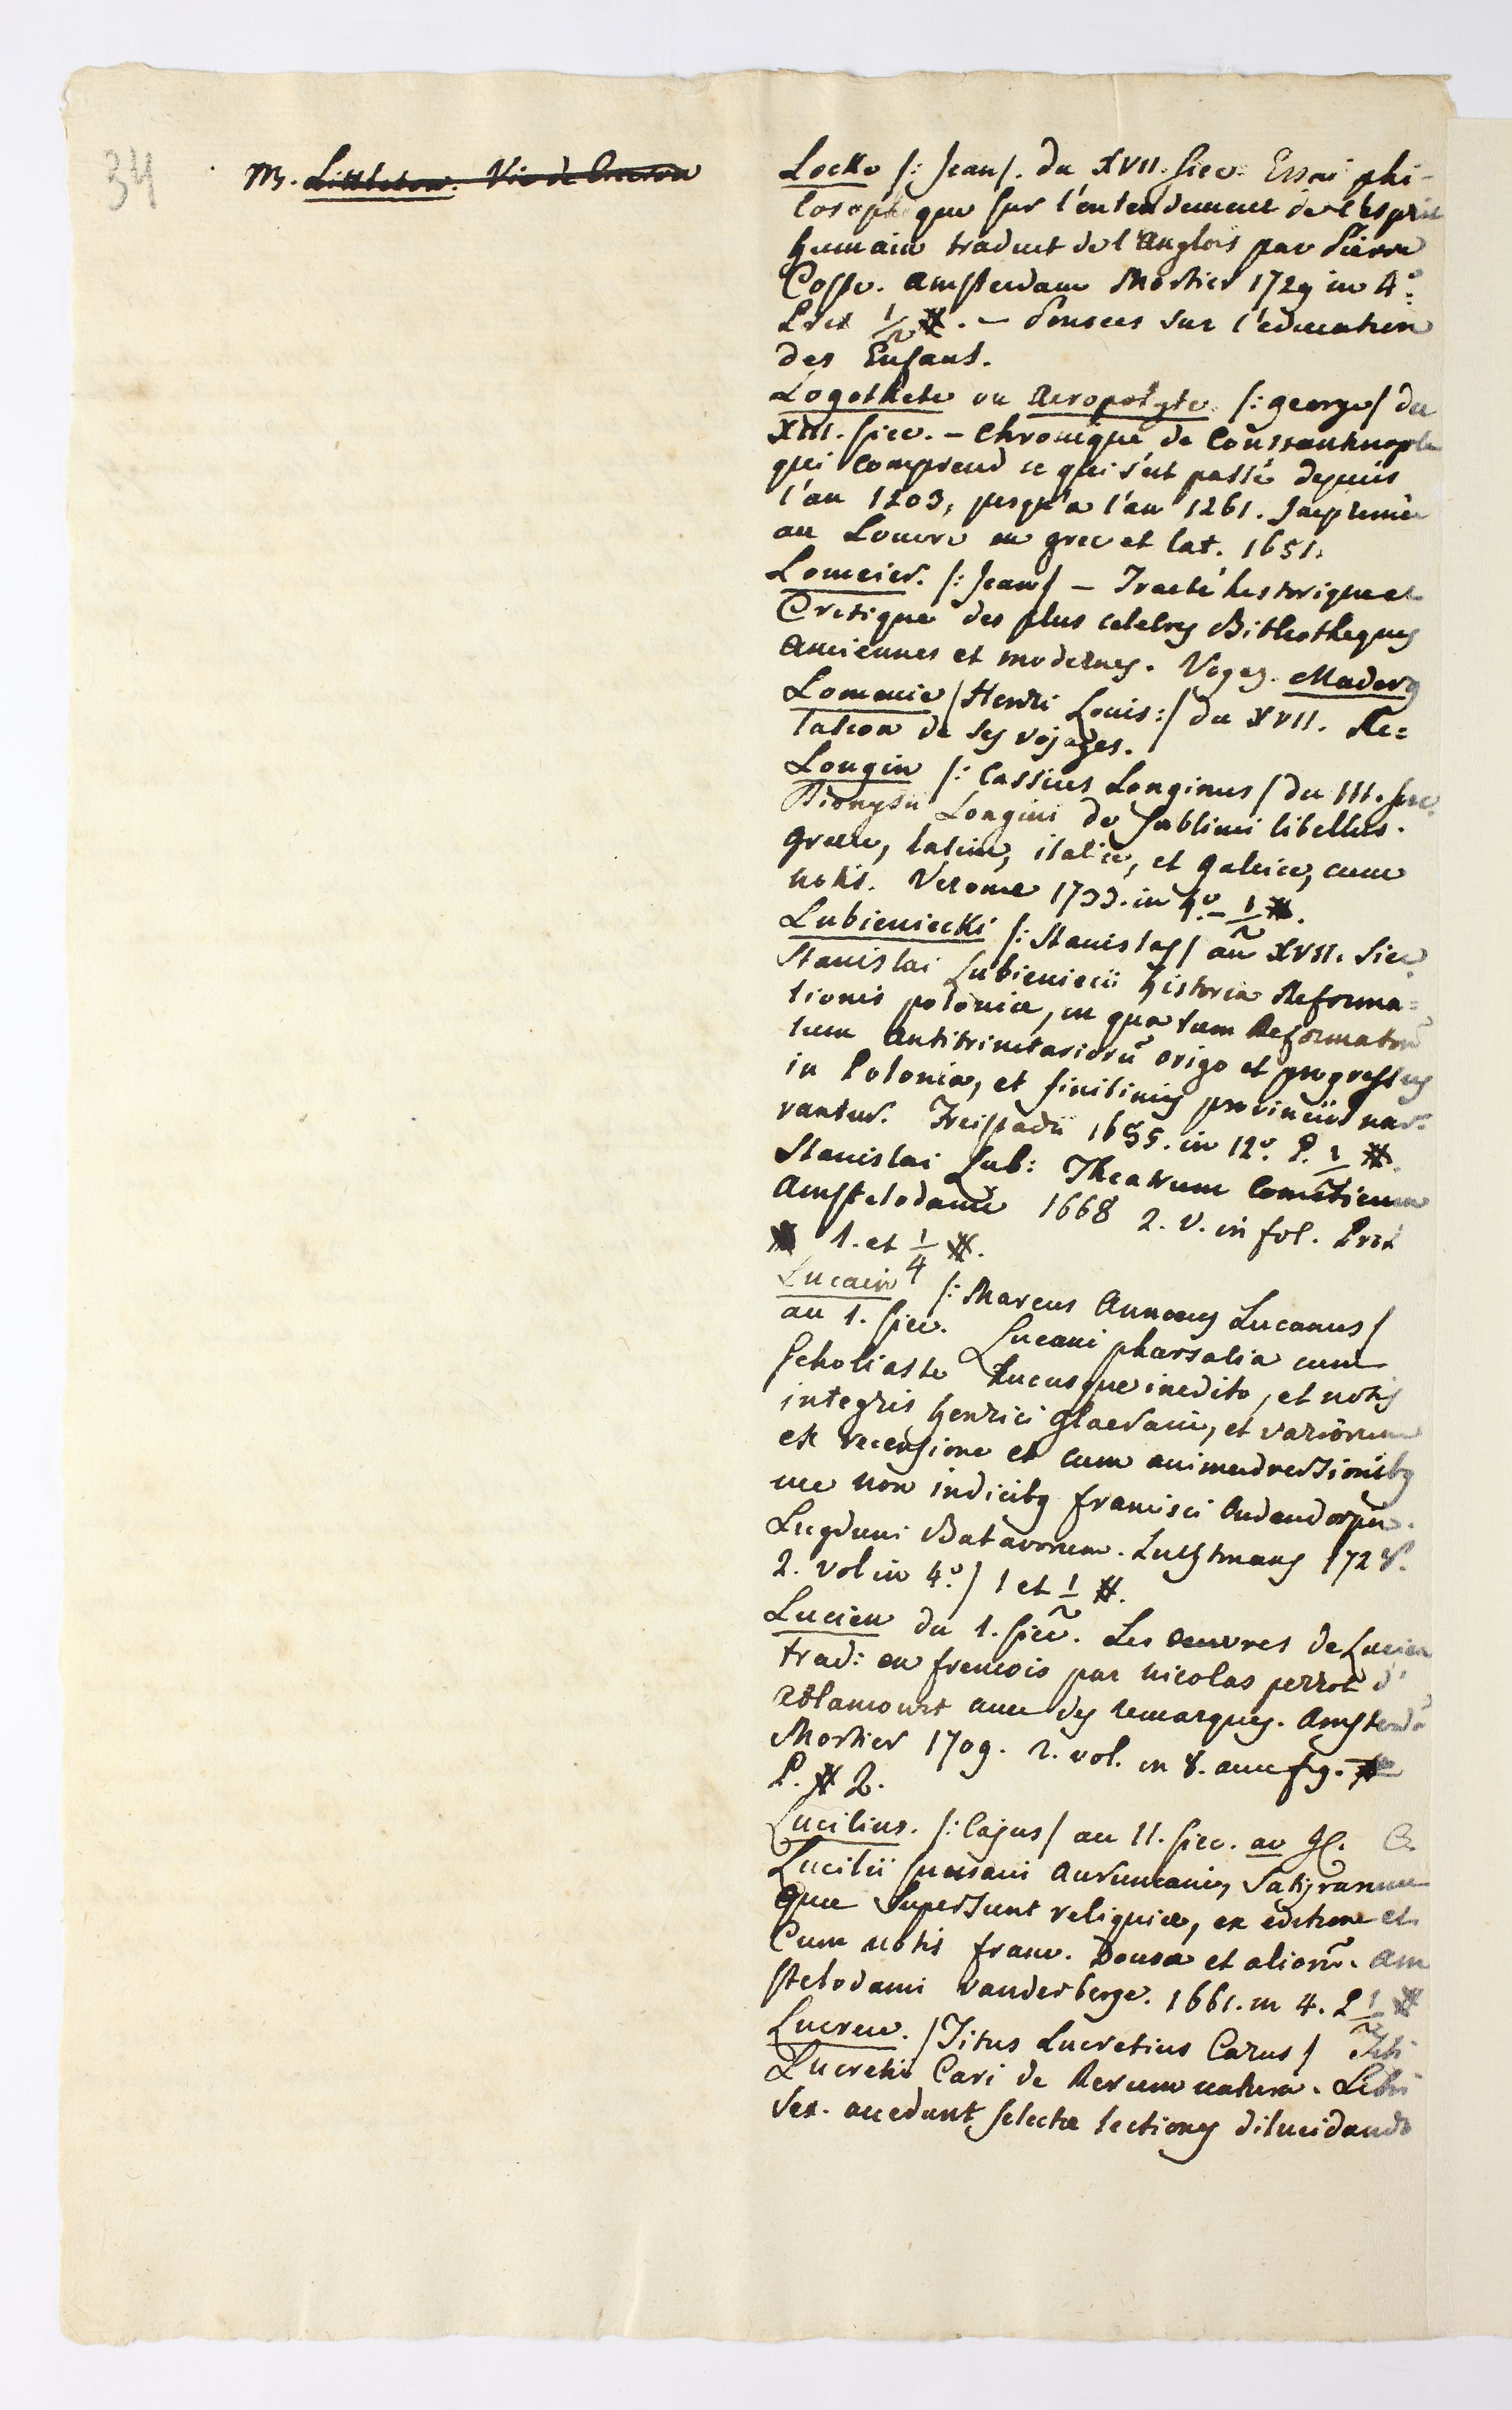 34
M. Littleton. Vie de Ciceron
Locke /: Jean /. du XVII. siec. Essai phi-
losophique sur l'entendement de l'Esprit
humain traduit de l'Anglois par Pierre
Coste. Amsterdam Mortier 1729 in 4°:
Prix 1/2 #. — Pensees sur l'education
des Enfans.
Logothete ou Acropolyte. /: George / du
XIII. siec. — Chronique de Constantinople
qui comprend ce qui s'est passé depuis
l'an 1203, jusqu'a l'an 1261. Imprimée
au Louvre en grec et lat. 1651.
Lomeier. /: Jean / — Traité historique et
Critique des plus celebres Bibliotheques
anciennes et modernes. Voyez. Maderg
Lomenie / Henri Louis :/ du XVII. Re=
lation de ses voyages.
Longin /: Cassius Longinus / du III. siec.
Dionysii Longini de Sublimi libellus.
græce, latine, italice, et galice, cum
notis. Veronæ 1733. in 4°. — 1/2 #.
Lubieniecki /: Stanislas / au XVII. siec.
Stanislai Lubieniecii historia Reforma=
tionis polonicæ, in qua tum Reformato
tum Antitrinitariorũ origo et progressus
in Polonia, et finitimis provinciis nar=
rantur. Freistadii 1685. in 12°. P. 1/2 #.
Stanislai Lub: Theatrum Cometicum
Amstelodami 1668 2. V. in fol. Prix
# 1. et 1/4 #.
Lucain /: Marcus Annæus Lucanus /
au 1. siec. Lucani pharsalia cum
Scholiaste hucusque inedito, et notis
integris henrici glareani, et variorum
ex recensione et cum animadversionibg
nec non indicibg francisci Oudendorpii.
Lugduni Batavorum. Luchtmans 1728.
2. vol in 4°. / 1 et 1/2 #.
Lucien du 1. siec. Les œuvres de Lucien
trad: en francois par nicolas perrot d'
Ablancourt avec des remarques. Amsterdã
Mortier 1709. 2. vol. in 8. avec fig.
P. # 2.
Lucilius. /: Cajus / au II. siec. av JC. C.
Lucilii suessani Auruncani, Satyrarum
quæ supersunt reliquiæ, ex editione et
Cum notis franc. Dousa et aliorũ. Am
stelodami vanderberge. 1661. in 4. P 1/2 #
Lucrece. / Titus Lucretius Carus / Titi
Lucretii Cari de Rerum natura. Libri
Sex. accedunt selectæ lectiones dilucidando